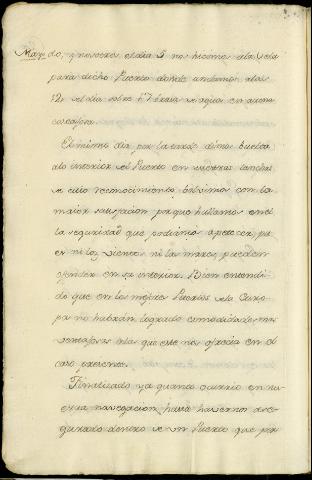 Mayo do, y nosotros el dia 5 nos hicimos a la Vela
para dicho Puerto donde anclamos a las
12 del dia sobre 17 brazas de agua en arena
cascajosa.
El mismo dia por la tarde dimos buelta
a lo interior del Puerto en nuestras lanchas
de cuio reconocimiento bolvimos con la
maior satisfacion porque hallamos en el
la seguridad que podiamos apetecer, pu
es ni los vientos ni las mares, pueden
ofender en su interior. Bien entendi
do que en los mejores Puertos de la Euro
pa no habrán logrado comodidades mas
ventajosas a las que este nos ofrecia en el
caso presente.
Finalizado ya quanto ocurrio en nu
estra navegacion hasta havernos ase
gurado dentro de un Puerto que por